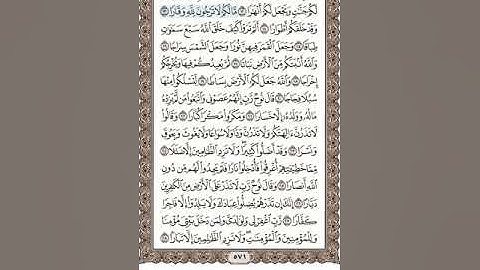 لَكُمْ جَنَّٰتٍ وَيَجْعَل لَّكُمْ أَنْهَٰرًا ١٢ مَّا لَكُمْ لَا تَرْجُونَ لِلَّهِ وَقَارًا ١٣
وَقَدْ خَلَقَكُمْ أَطْوَارًا ١٤ أَلَمْ تَرَوْا۟ كَيْفَ خَلَقَ ٱللَّهُ سَبْعَ سَمَٰوَٰتٍ
طِبَاقًا ١٥ وَجَعَلَ ٱلْقَمَرَ فِيهِنَّ نُورًا وَجَعَلَ ٱلشَّمْسَ سِرَاجًا ١٦
وَٱللَّهُ أَنۢبَتَكُم مِّنَ ٱلْأَرْضِ نَبَاتًا ١٧ ثُمَّ يُعِيدُكُمْ فِيهَا وَيُخْرِجُكُمْ
إِخْرَاجًا ١٨ وَٱللَّهُ جَعَلَ لَكُمُ ٱلْأَرْضَ بِسَاطًا ١٩ لِّتَسْلُكُوا۟ مِنْهَا
سُبُلًا فِجَاجًا ٢٠ قَالَ نُوحٌ رَّبِّ إِنَّهُمْ عَصَوْنِى وَٱتَّبَعُوا۟ مَن لَّمْ يَزِدْهُ
مَالُهُۥ وَوَلَدُهُۥٓ إِلَّا خَسَارًا ٢١ وَمَكَرُوا۟ مَكْرًا كُبَّارًا ٢٢ وَقَالُوا۟
لَا تَذَرُنَّ ءَالِهَتَكُمْ وَلَا تَذَرُنَّ وَدًّا وَلَا سُوَاعًا وَلَا يَغُوثَ وَيَعُوقَ
وَنَسْرًا ٢٣ وَقَدْ أَضَلُّوا۟ كَثِيرًا ۖ وَلَا تَزِدِ ٱلظَّٰلِمِينَ إِلَّا ضَلَٰلًا ٢٤
مِّمَّا خَطِيٓـَٰٔتِهِمْ أُغْرِقُوا۟ فَأُدْخِلُوا۟ نَارًا فَلَمْ يَجِدُوا۟ لَهُم مِّن دُونِ
ٱللَّهِ أَنصَارًا ٢٥ وَقَالَ نُوحٌ رَّبِّ لَا تَذَرْ عَلَى ٱلْأَرْضِ مِنَ ٱلْكَٰفِرِينَ
دَيَّارًا ٢٦ إِنَّكَ إِن تَذَرْهُمْ يُضِلُّوا۟ عِبَادَكَ وَلَا يَلِدُوٓا۟ إِلَّا فَاجِرًا
كَفَّارًا ٢٧ رَّبِّ ٱغْفِرْ لِى وَلِوَٰلِدَىَّ وَلِمَن دَخَلَ بَيْتِىَ مُؤْمِنًا
وَلِلْمُؤْمِنِينَ وَٱلْمُؤْمِنَٰتِ وَلَا تَزِدِ ٱلظَّٰلِمِينَ إِلَّا تَبَارًۢا ٢٨
٥٧١